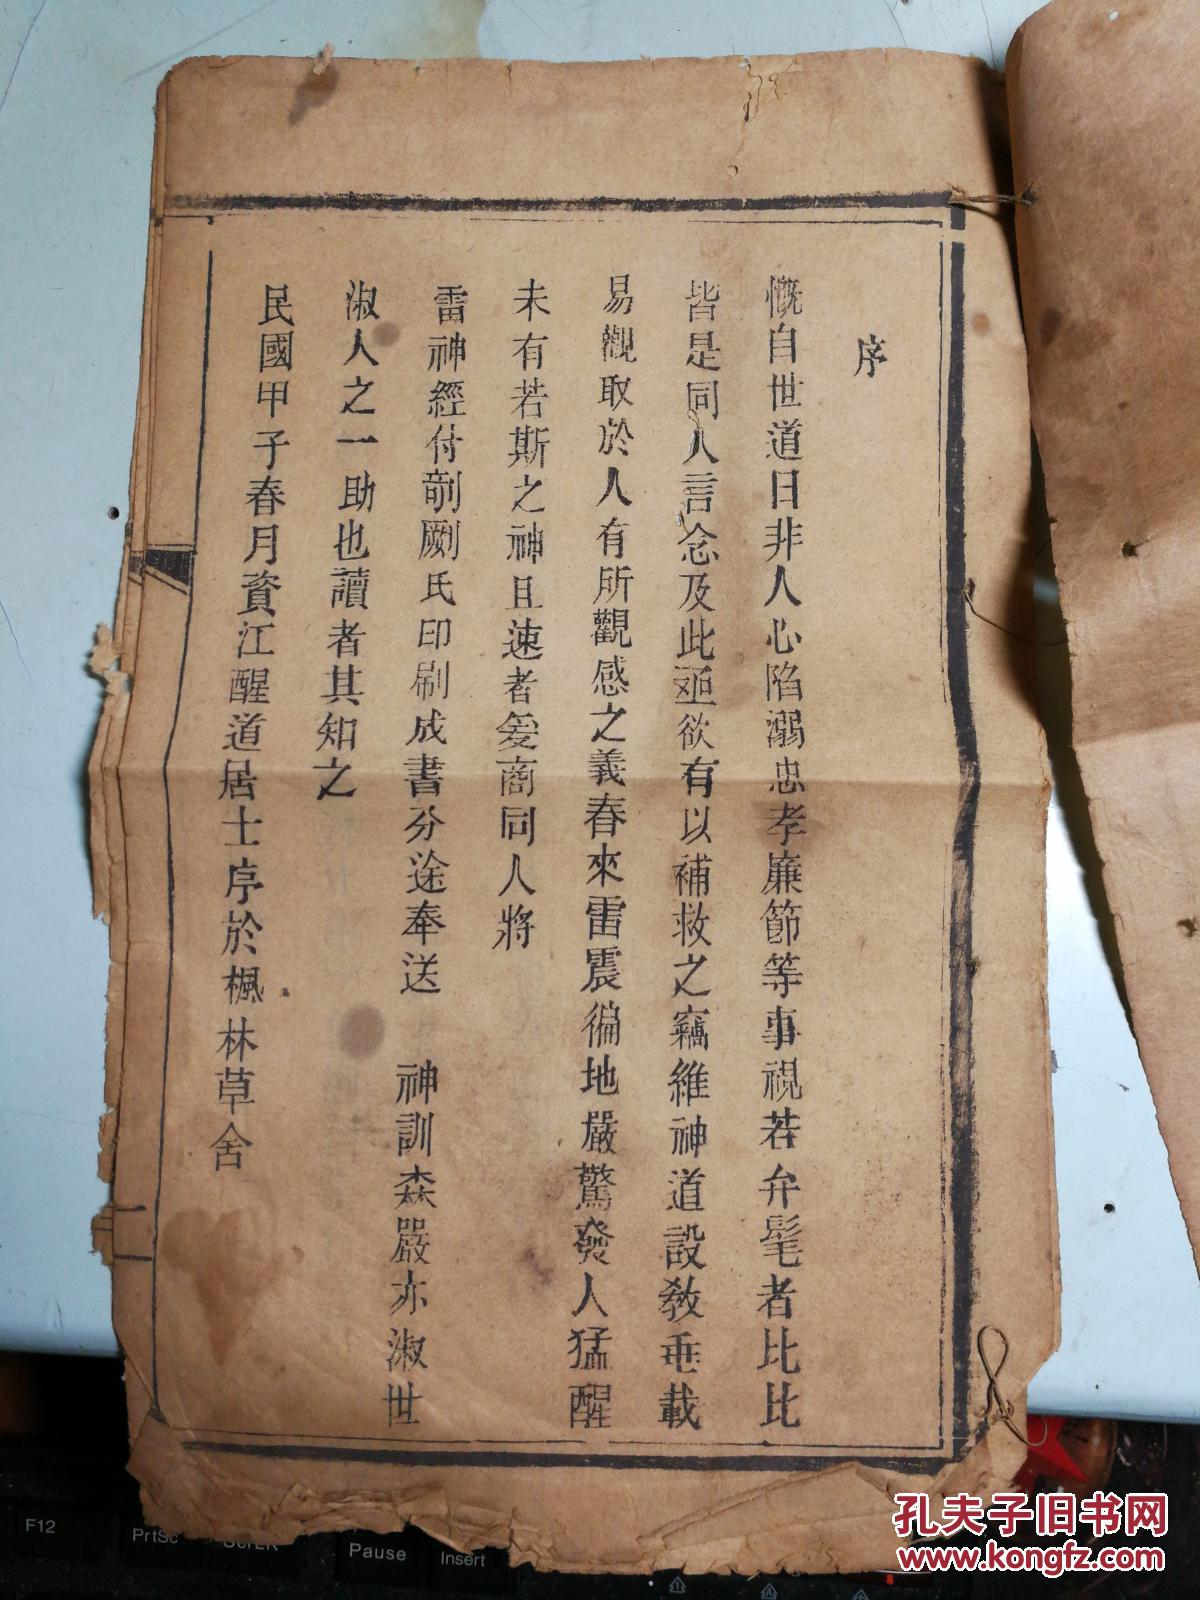 序
慨自世道日非人心陷溺忠孝廉節等事視若弁髦者比比
皆是同人言念及此亟欲有以補救之竊維神道設教垂載
易觀取於人有所觀感之義春來雷震徧地嚴驚發人猛醒
未有若斯之神且速者爰商同人將
雷神經付剞劂氏印刷成書分途奉送 神訓森嚴亦淑世
淑人之一助也讀者其知之
民國甲子春月資江醒道居士序於楓林草舍
一
孔夫子旧书网
www.kongfz.com
F12
PrtSc
ScrLK
Pause
Insert